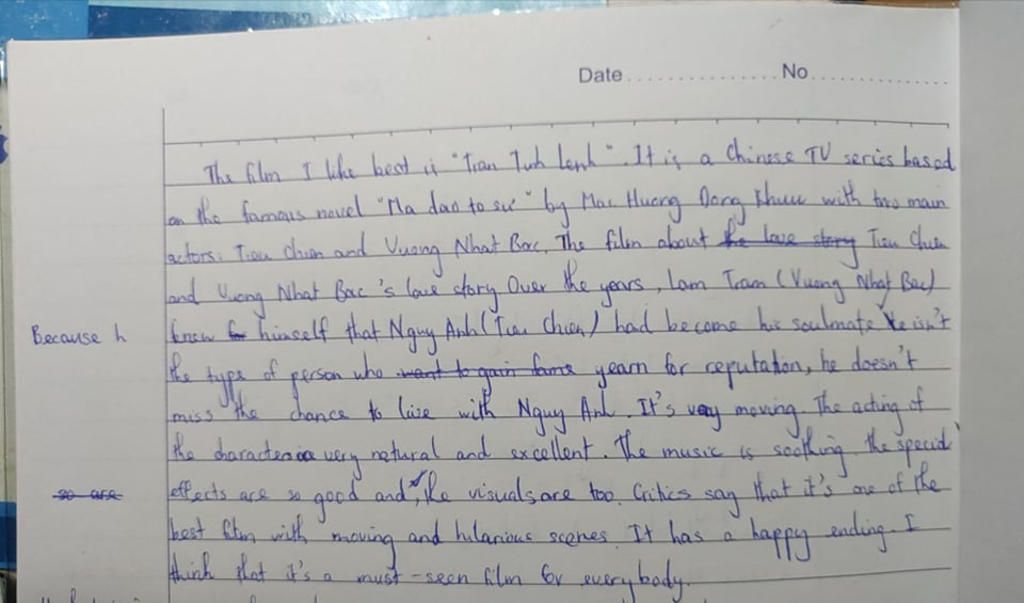 Date ............... No ...............
The film I like best is "Tran Tinh Lenh". It is a Chinese TV series based
on the famous novel "Ma dao to su" by Mac Huong Dong Khuu with two main
actors: Tieu Chien and Vuong Nhat Bac. The film about the love story Tieu Chien
and Vuong Nhat Bac's love story Over the years, Lam Tram (Vuong Nhat Bac)
Because h
knew himself that Nguy Anh (Tieu Chien) had become his soulmate he isn't
the type of person who want to gain fame yearn for reputation, he doesn't
miss the chance to live with Nguy Anh. It's very moving. The acting of
the character very natural and excellent. The music is soothing. the special
so are
effects are so good and, the visuals are too. Critics say that it's one of the
best film with moving and hilarious scenes. It has a happy ending. I
think that it's a must-seen film for everybody.